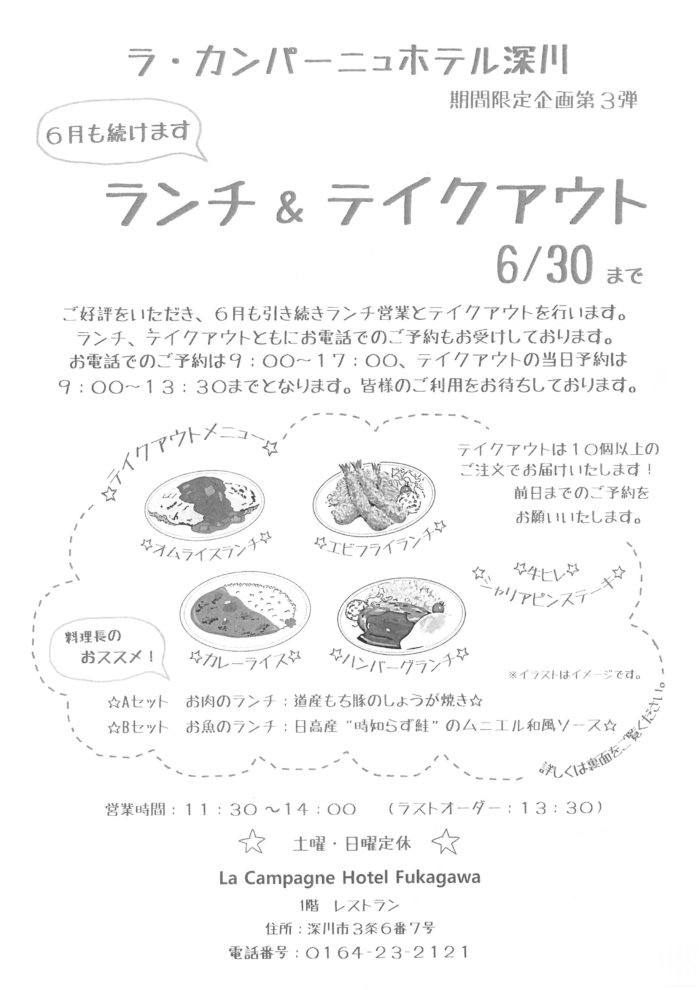 ラ・カンパーニュホテル深川
期間限定企画第3弾
6月も続けます
ランチ & テイクアウト
6/30 まで
ご好評をいただき、6月も引き続きランチ営業とテイクアウトを行います。
ランチ、テイクアウトともにお電話でのご予約もお受けしております。
お電話でのご予約は9:00~17:00、テイクアウトの当日予約は
9:00~13:30までとなります。皆様のご利用をお待ちしております。
☆テイクアウトメニュー☆
テイクアウトは10個以上の
ご注文でお届けいたします!
前日までのご予約を
お願いいたします。
☆オムライスランチ☆
☆エビフライランチ☆
☆牛ヒレ☆
☆シャリアピンステーキ☆
☆カレーライス☆
☆ハンバーグランチ☆
料理長の
おススメ!
※イラストはイメージです。
☆Aセット お肉のランチ:道産もち豚のしょうが焼き☆
☆Bセット お魚のランチ:日高産 "時知らず鮭" のムニエル和風ソース☆
詳しくは裏面をご覧ください。
営業時間:11:30~14:00 (ラストオーダー:13:30)
☆ 土曜・日曜定休 ☆
La Campagne Hotel Fukagawa
1階 レストラン
住所:深川市3条6番7号
電話番号:0164-23-2121